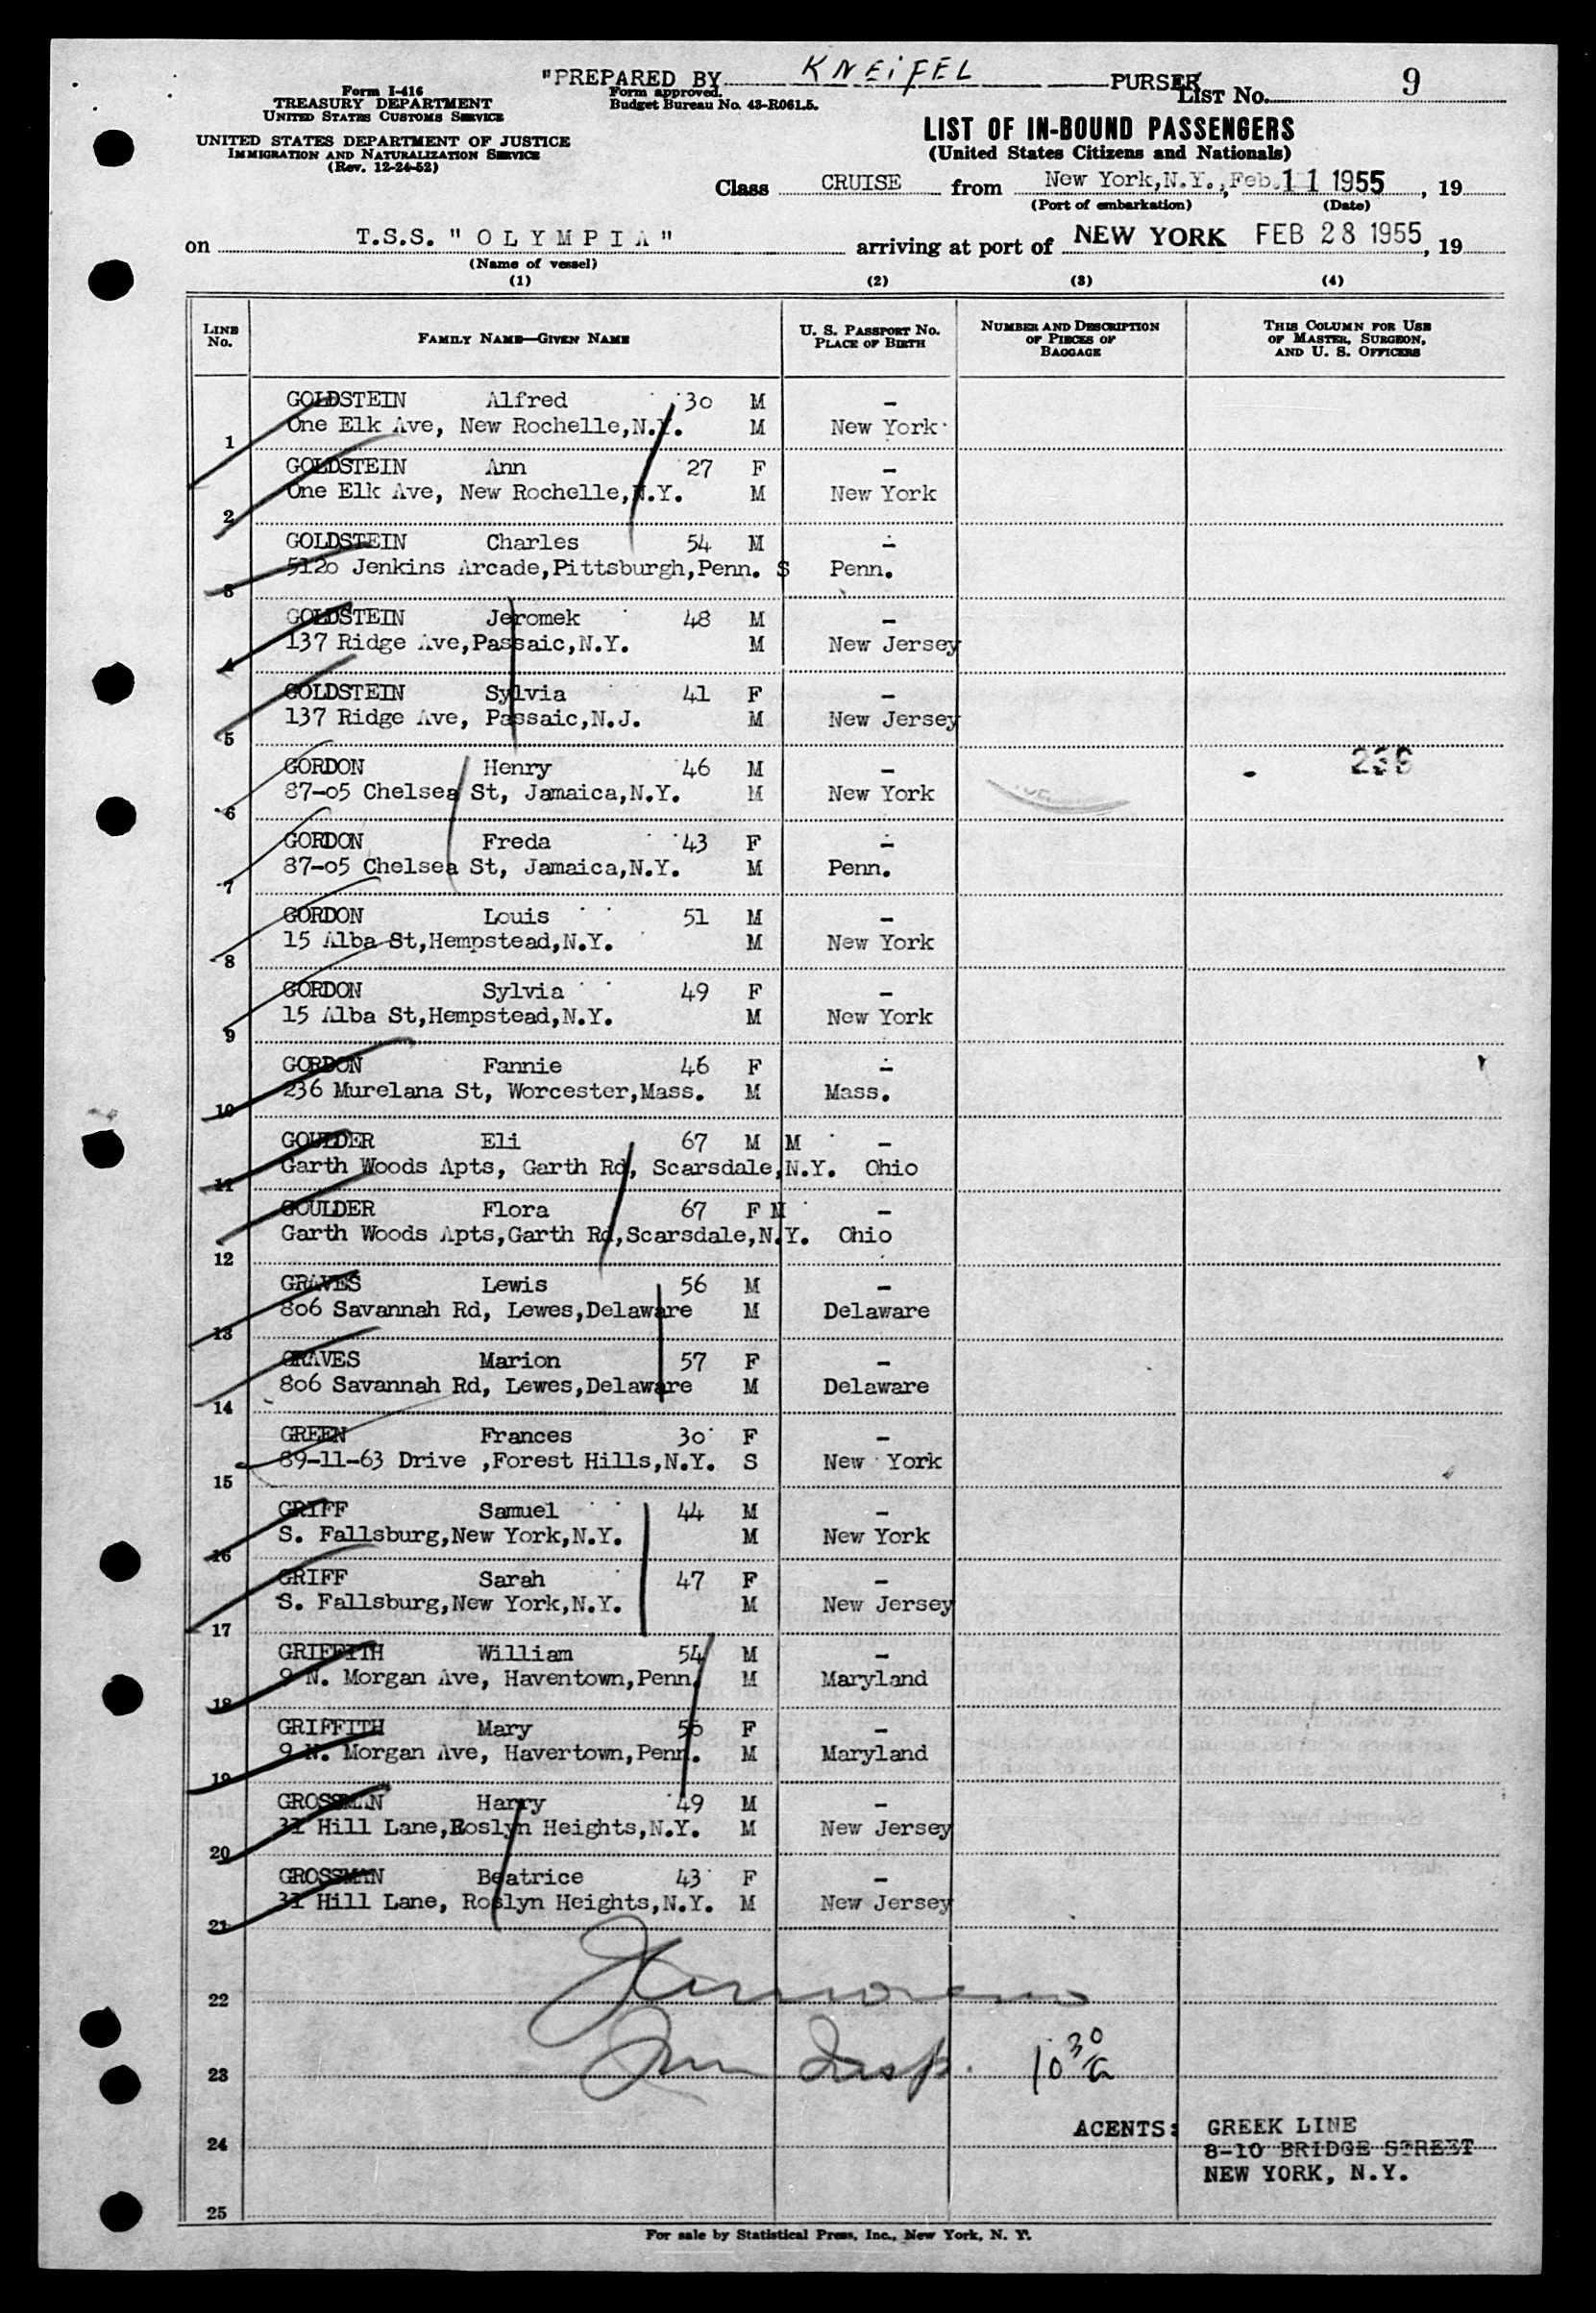 "PREPARED BY KNEIFEL PURSER
Form I-416
TREASURY DEPARTMENT
UNITED STATES CUSTOMS SERVICE
UNITED STATES DEPARTMENT OF JUSTICE
IMMIGRATION AND NATURALIZATION SERVICE
(Rev. 12-24-52)
Form approved.
Budget Bureau No. 43-R061.5.
LIST NO. 9
LIST OF IN-BOUND PASSENGERS
(United States Citizens and Nationals)
Class CRUISE from New York,N.Y., Feb. 11 1955, 19
(Port of embarkation) (Date)
on T.S.S. "OLYMPIA" arriving at port of NEW YORK FEB 28 1955, 19
(Name of vessel)
(1) (2) (3) (4)
LINE No. FAMILY NAME—GIVEN NAME U. S. PASSPORT NO. PLACE OF BIRTH NUMBER AND DESCRIPTION OF PIECES OF BAGGAGE THIS COLUMN FOR USE OF MASTER, SURGEON, AND U. S. OFFICERS
GOLDSTEIN Alfred 30 M -
1 One Elk Ave, New Rochelle,N.Y. M New York
GOLDSTEIN Ann 27 F -
2 One Elk Ave, New Rochelle,N.Y. M New York
GOLDSTEIN Charles 54 M -
3 5120 Jenkins Arcade,Pittsburgh,Penn. S Penn.
GOLDSTEIN Jeromek 48 M -
4 137 Ridge Ave,Passaic,N.Y. M New Jersey
GOLDSTEIN Sylvia 41 F -
5 137 Ridge Ave, Passaic,N.J. M New Jersey
GORDON Henry 46 M - 236
6 87-05 Chelsea St, Jamaica,N.Y. M New York
GORDON Freda 43 F -
7 87-05 Chelsea St, Jamaica,N.Y. M Penn.
GORDON Louis 51 M -
8 15 Alba St,Hempstead,N.Y. M New York
GORDON Sylvia 49 F -
9 15 Alba St,Hempstead,N.Y. M New York
GORDON Fannie 46 F -
10 236 Murelana St, Worcester,Mass. M Mass.
GOULDER Eli 67 M M -
11 Garth Woods Apts, Garth Rd, Scarsdale,N.Y. Ohio
GOULDER Flora 67 F M -
12 Garth Woods Apts,Garth Rd,Scarsdale,N.Y. Ohio
GRAVES Lewis 56 M -
13 806 Savannah Rd, Lewes,Delaware M Delaware
GRAVES Marion 57 F -
14 806 Savannah Rd, Lewes,Delaware M Delaware
GREEN Frances 30 F -
15 89-11-63 Drive ,Forest Hills,N.Y. S New York
GRIFF Samuel 44 M -
16 S. Fallsburg,New York,N.Y. M New York
GRIFF Sarah 47 F -
17 S. Fallsburg,New York,N.Y. M New Jersey
GRIFFITH William 54 M -
18 9 N. Morgan Ave, Haventown,Penn. M Maryland
GRIFFITH Mary 55 F -
19 9 N. Morgan Ave, Havertown,Penn. M Maryland
GROSSMAN Harry 49 M -
20 31 Hill Lane,Roslyn Heights,N.Y. M New Jersey
GROSSMAN Beatrice 43 F -
21 31 Hill Lane, Roslyn Heights,N.Y. M New Jersey
22
23 Imm Insp. 10 30 a
24
AGENTS: GREEK LINE
8-10 BRIDGE STREET
NEW YORK, N.Y.
25
For sale by Statistical Press, Inc., New York, N. Y.